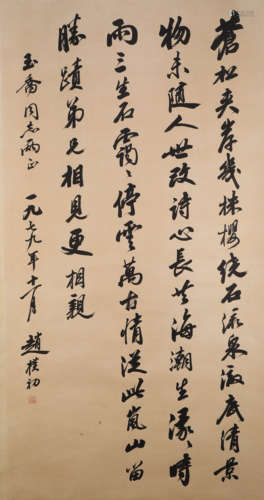 蒼松夾岸幾株櫻繞石流泉澈底清景
物未隨人世改詩心長共海潮生濛〻時
雨三生石靄〻停雲萬古情從此嵐山留
勝蹟弟兄相見更相親
玉喬同志兩正 一九七九年十一月 趙樸初